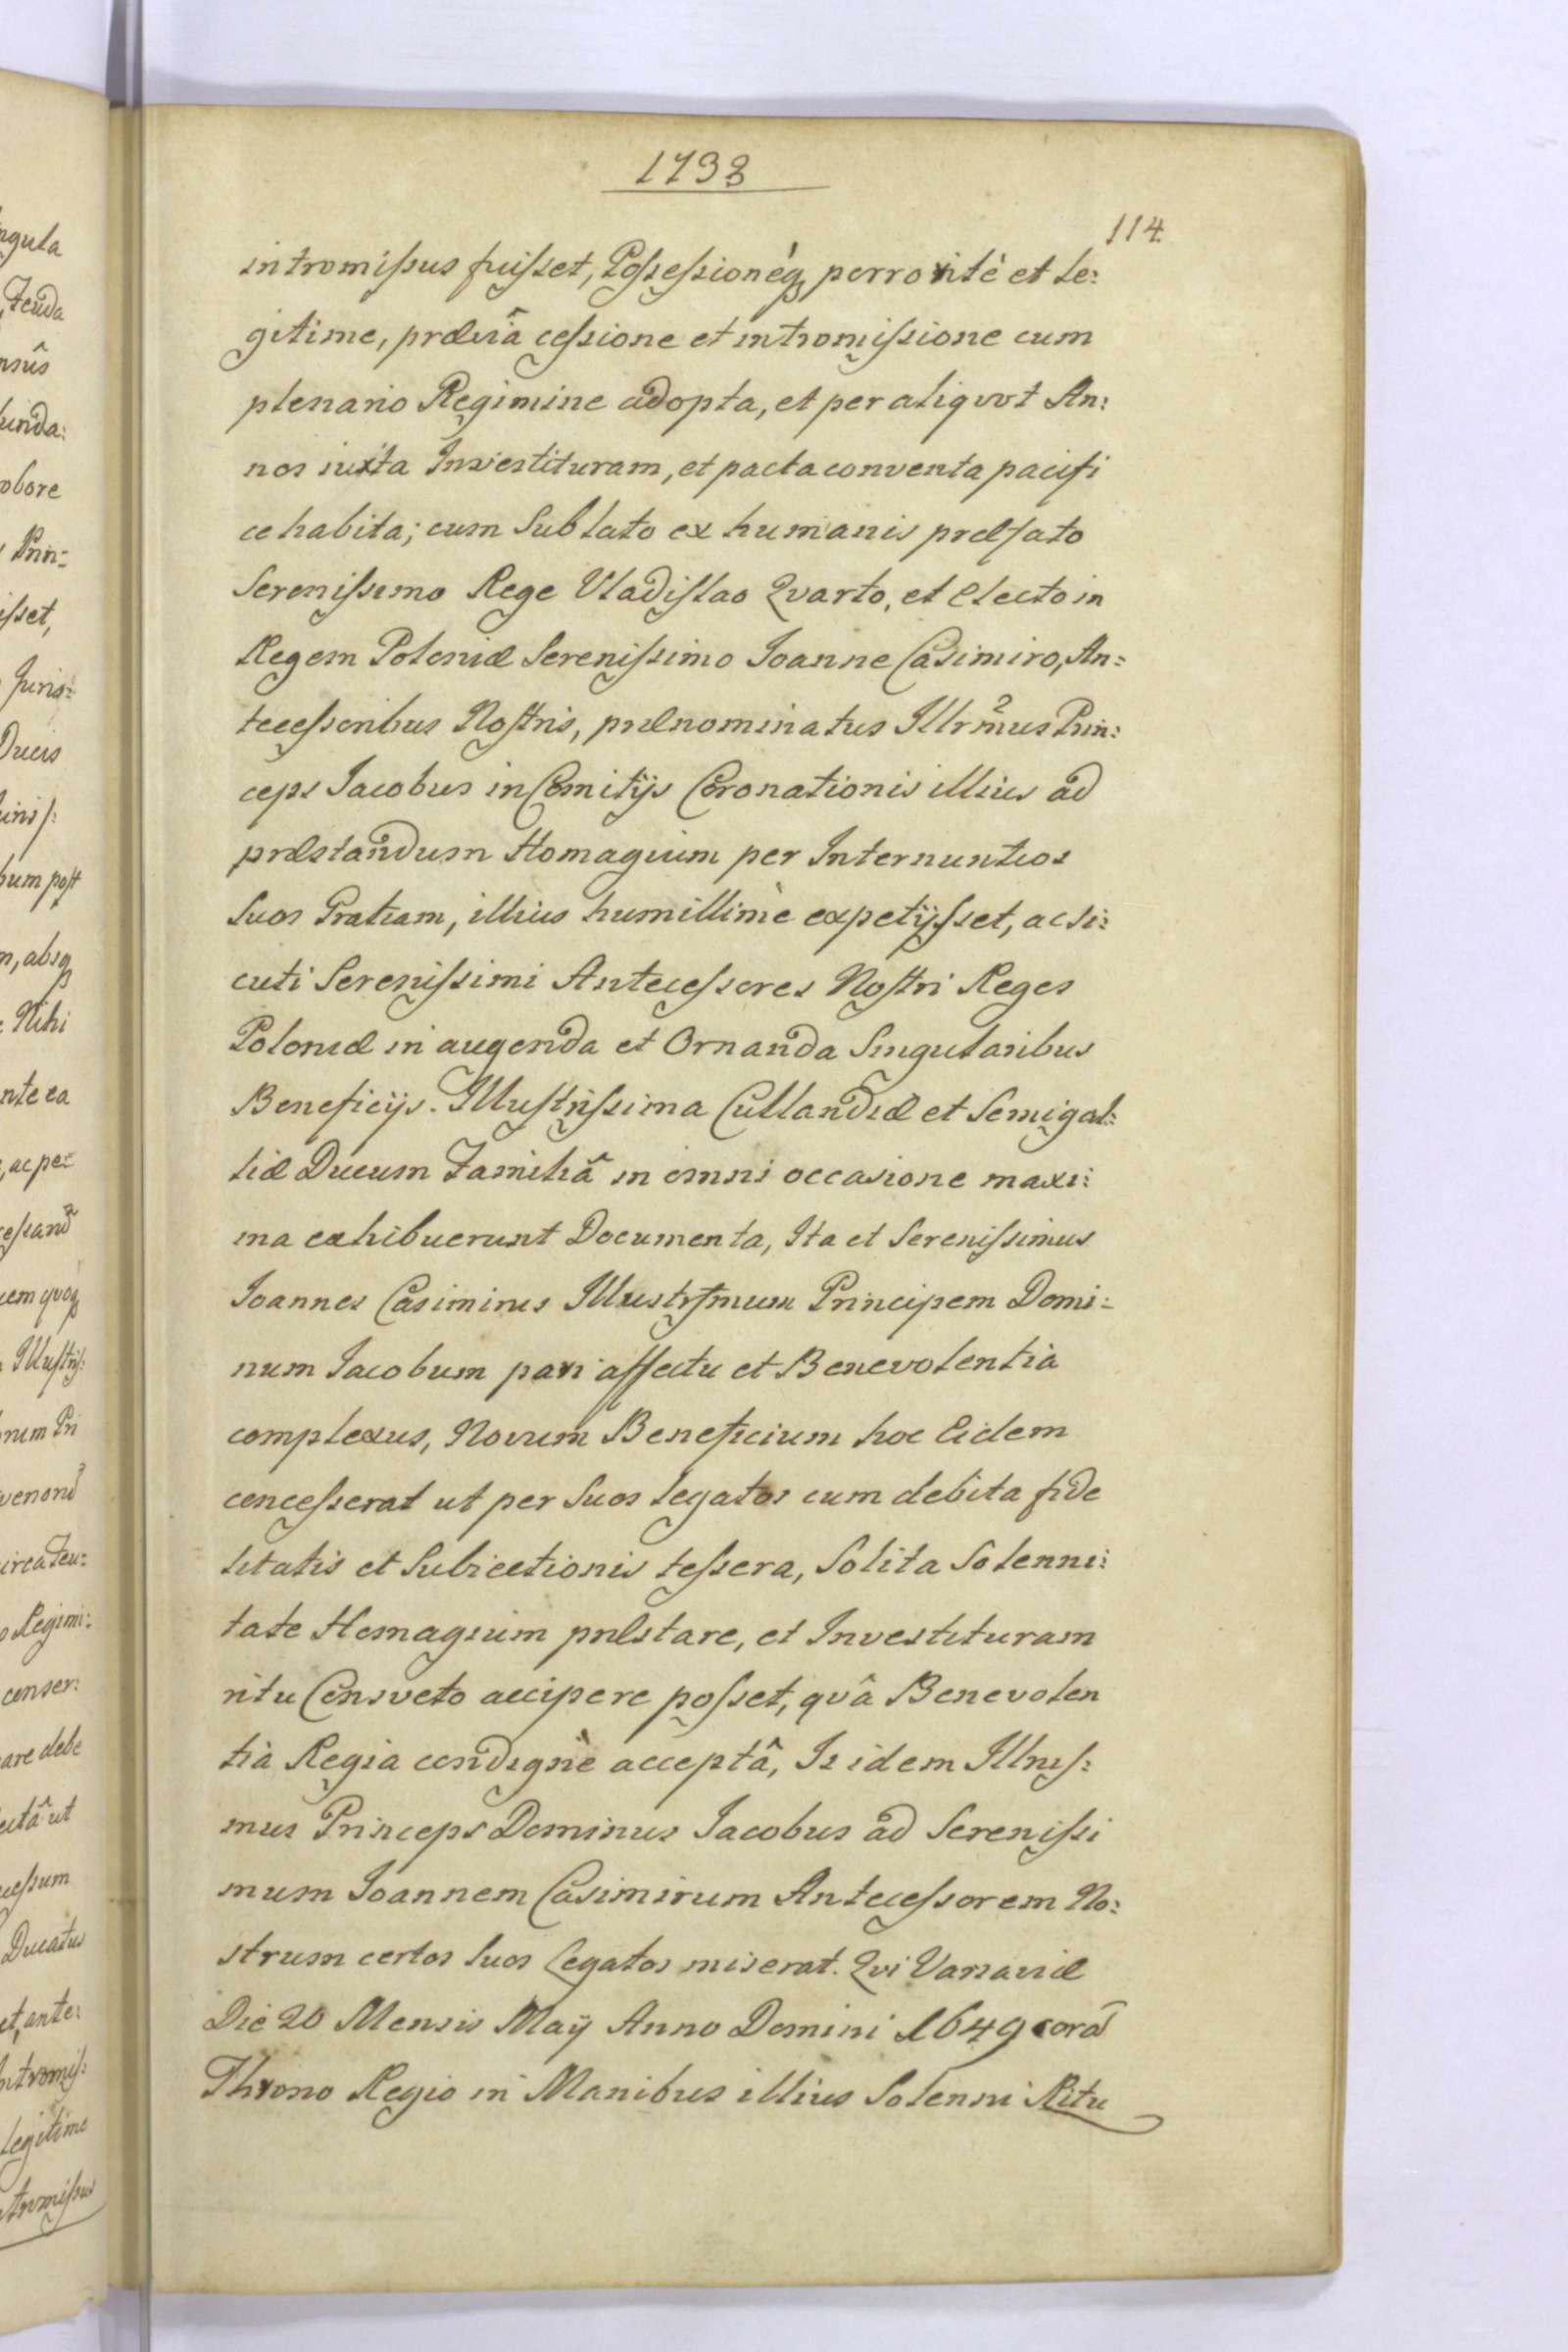 1738
114
intromissus fuisset, Possessioneq; porro ritè et le:
gitime, præviâ cessione et intromissione cum
plenario Regimine adopta, et per aliqvot An:
nos iuxta Investituram, et pacta conventa pacifi
ce habita; cum Sublato ex humanis præfato
Serenissimo Rege Vladislao Qvarto, et Electo in
Regem Poloniæ Serenissimo Joanne Casimiro, An=
tecessoribus Nostris, prænominatus Illrmus Prin:
ceps Jacobus in Comitijs Coronationis illius ad
præstandum Homagium per Internuntios
Suos Gratiam, illius humillimè expetijsset, ac si:
cuti Serenissimi Antecessores Nostri Reges
Poloniæ in augenda et Ornanda Singularibus
Beneficijs. Illustrissima Curlandiæ et Semigal:
liæ Ducum Familiâ in omni occasione maxi:
ma exhibuerunt Documenta, Ita et Serenissimus
Joannes Casimirus Illustrsmum Principem Domi=
num Jacobum pari affectu et Benevolentia
complexus, Novum Beneficium hoc Eidem
concesserat ut per Suos legatos cum debita fide
litatis et Subiectionis tessera, Solita Solenni:
tate Homagium præstare, et Investituram
ritu Consveto accipere posset, qvâ Benevolen
tiâ Regia condignè acceptâ, Is idem Illris:
mus Princeps Dominus Jacobus ad Serenissi
mum Joannem Casimirum Antecessorem No:
strum certos Suos Legatos miserat. Qvi Varsaviæ
Die 20 Mensis Maij Anno Domini 1649 corã
Throno Regio in Manibus illius Solenni Ritu